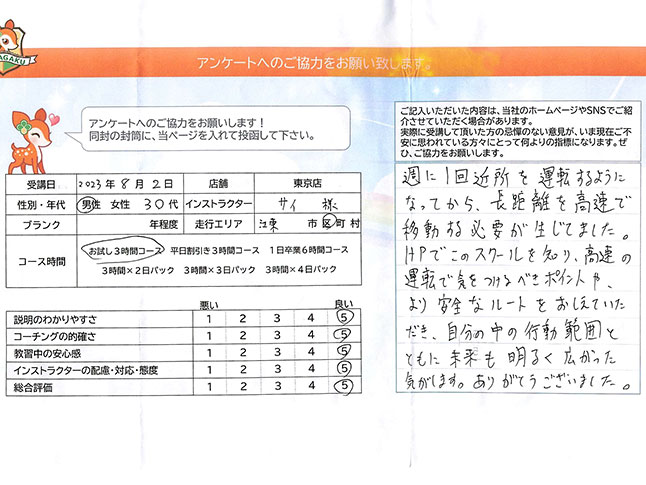 AGAKU
アンケートへのご協力をお願い致します。
アンケートへのご協力をお願いします！
同封の封筒に、当ページを入れて投函して下さい。
受講日 2023年 8月 2日 店舗 東京店
性別・年代 男性 女性 30代 インストラクター サイ 様
ブランク 年程度 走行エリア 江東 市 区 町 村
コース時間 お試し3時間コース 平日割引き3時間コース 1日卒業6時間コース
3時間×2日パック 3時間×3日パック 3時間×4日パック
悪い 良い
説明のわかりやすさ 1 2 3 4 5
コーチングの的確さ 1 2 3 4 5
教習中の安心感 1 2 3 4 5
インストラクターの配慮・対応・態度 1 2 3 4 5
総合評価 1 2 3 4 5
ご記入いただいた内容は、当社のホームページやSNSでご紹
介させていただく場合があります。
実際に受講して頂いた方の忌憚のない意見が、いま現在ご不
安に思われている方々にとって何よりの指標になります。ぜ
ひ、ご協力をお願いします。
週に1回近所を運転するように
なってから、長距離を高速で
移動する必要が生じてました。
HPでこのスクールを知り、高速の
運転で気をつけるべきポイントや、
より安全なルートをおしえていた
だき、自分の中の行動範囲と
ともに未来も明るく広がった
気がします。ありがとうございました。